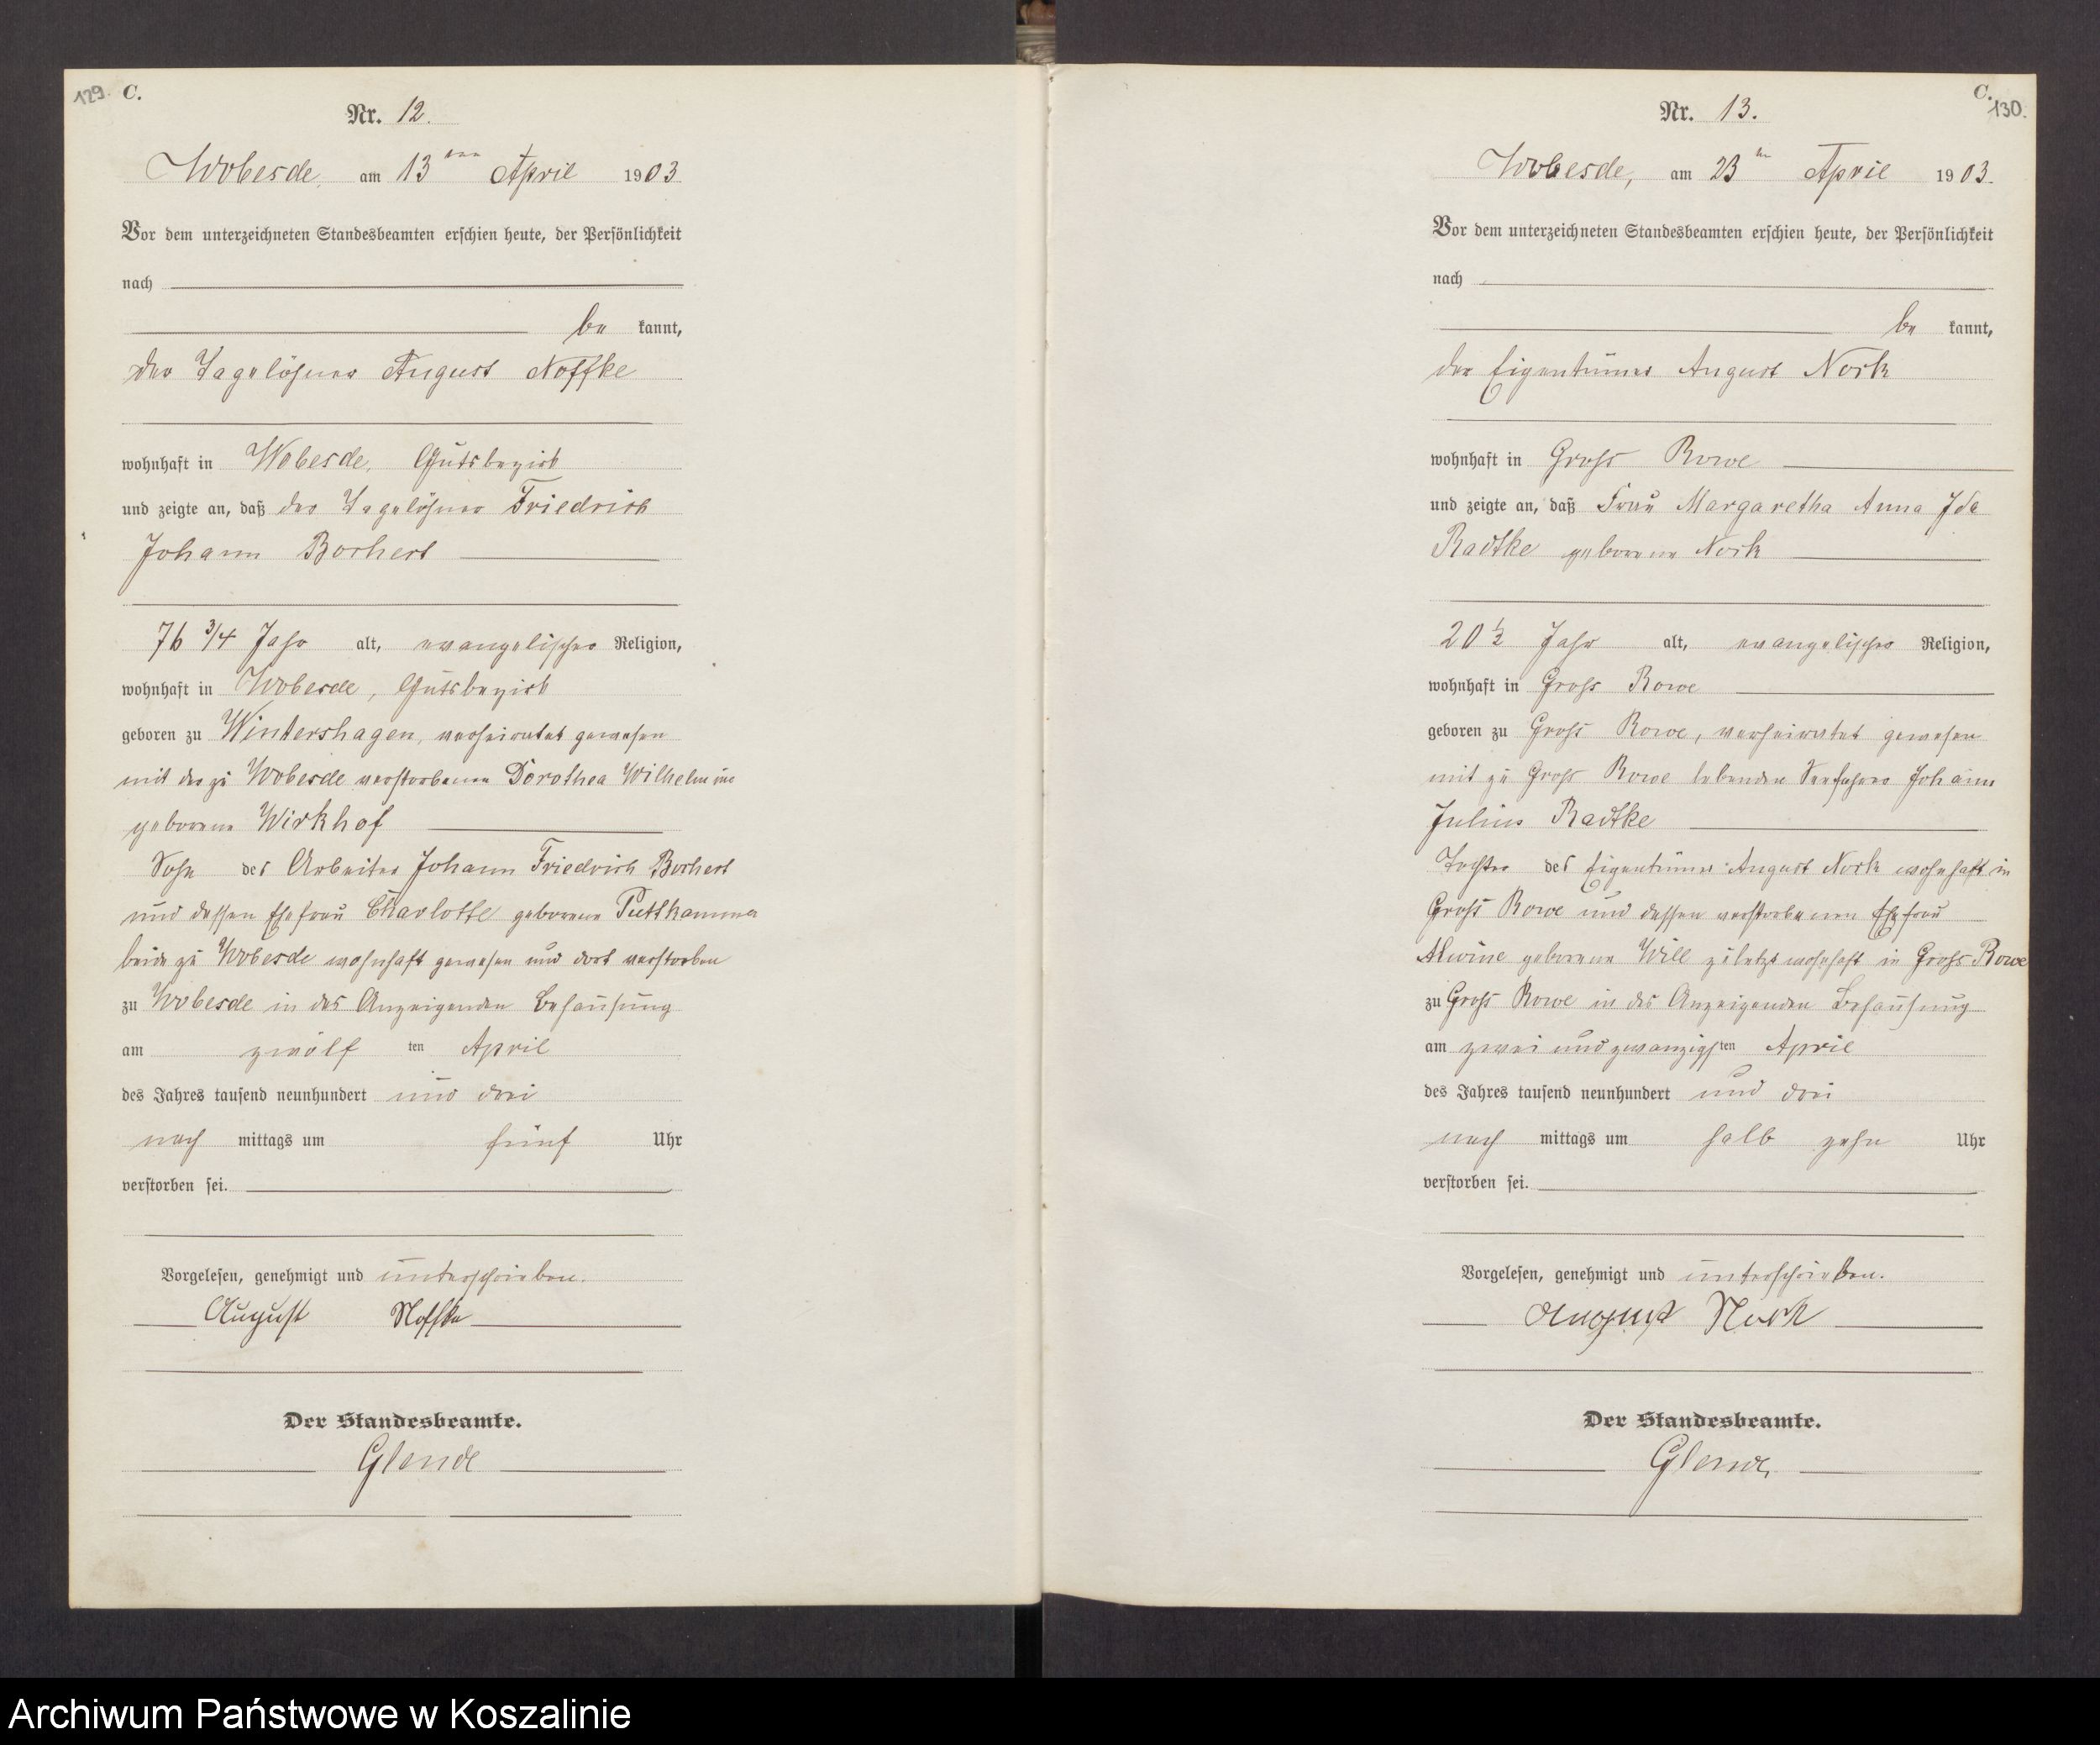 129. C.
Nr. 12.
Wobesde, am 13ten April 1903
Vor dem unterzeichneten Standesbeamten erschien heute, der Persönlichkeit
nach
be kannt,
der Tagelöhner August Noffke
wohnhaft in Wobesde, Gutsbezirk
und zeigte an, daß der Tagelöhner Friedrich
Johann Borchert
76 3/4 Jahr alt, evangelischer Religion,
wohnhaft in Wobesde, Gutsbezirk
geboren zu Wintershagen, verheiratet gewesen
mit der zu Wobesde verstorbenen Dorothea Wilhelmine
geborene Wirkhof
Sohn des Arbeiter Johann Friedrich Borchert
und dessen Ehefrau Charlotte geborene Puttkammer
beide zu Wobesde wohnhaft gewesen und dort verstorben
zu Wobesde in des Anzeigenden Behausung
am zwölf ten April
des Jahres tausend neunhundert und drei
nach mittags um fünf Uhr
verstorben sei.
Vorgelesen, genehmigt und unterschrieben.
August Noffke
Der Standesbeamte.
Glende
C. 130.
Nr. 13.
Wobesde, am 23ten April 1903.
Vor dem unterzeichneten Standesbeamten erschien heute, der Persönlichkeit
nach
be kannt,
der Eigentümer August Nork
wohnhaft in Gross Rowe
und zeigte an, daß Frau Margaretha Anna Ida
Radtke geborene Nork
20 1/2 Jahr alt, evangelischer Religion,
wohnhaft in Gross Rowe
geboren zu Gross Rowe, verheiratet gewesen
mit zu Gross Rowe lebenden Seefahrer Johann
Julius Radtke
Tochter des Eigentümer August Nork wohnhaft in
Gross Rowe und dessen verstorbenen Ehefrau
Alwine geborene Will zuletzt wohnhaft in Gross Rowe
zu Gross Rowe in des Anzeigenden Behausung
am zwei und zwanzigsten April
des Jahres tausend neunhundert und drei
nach mittags um halb zehn Uhr
verstorben sei.
Vorgelesen, genehmigt und unterschrieben.
August Nork
Der Standesbeamte.
Glende
Archiwum Państwowe w Koszalinie